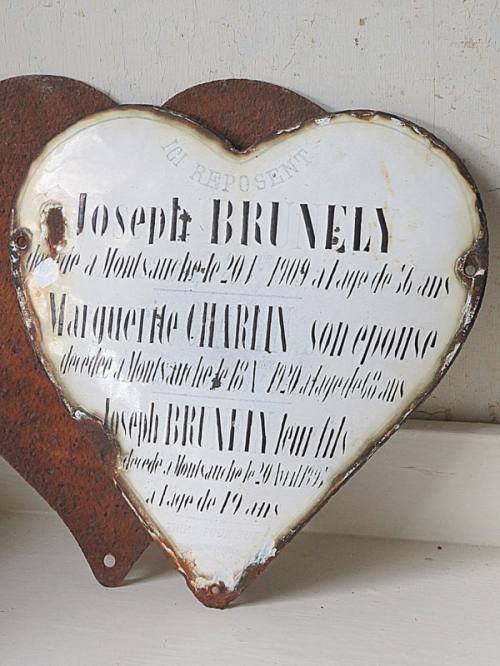 ICI REPOSENT
Joseph BRUNELY
décédé à Montsauche le 20 1909 à l'age de 56 ans
Marguerite CHARLIN son epouse
décédée à Montsauche le 1920 à l'age de 68 ans
Joseph BRUNELY leur fils
décédé à Montsauche le 20 Avril
à l'age de 19 ans